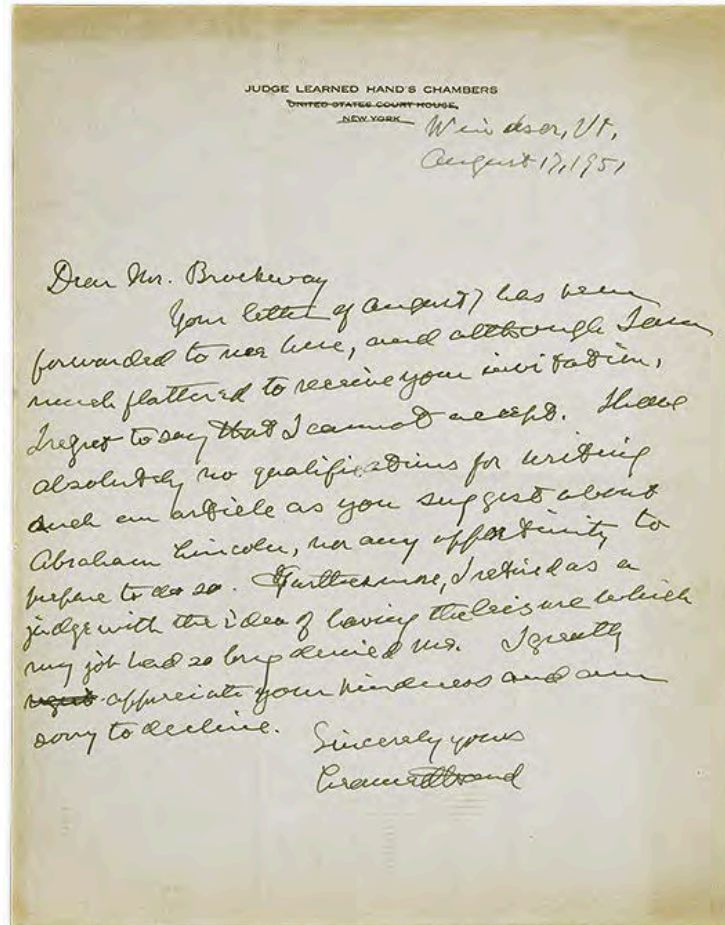 JUDGE LEARNED HAND'S CHAMBERS
UNITED STATES COURT HOUSE,
NEW YORK
Windsor, Vt,
August 17, 1951
Dear Mr. Brockway
Your letter of August 7 has been
forwarded to me here, and although I am
much flattered to receive your invitation,
I regret to say that I cannot accept. I have
absolutely no qualifications for writing
such an article as you suggest about
Abraham Lincoln, nor any opportunity to
prepare to do so. Furthermore, I retired as a
judge with the idea of having the leisure which
my job had so long denied me. I greatly
appreciate your kindness and am
sorry to decline.
Sincerely yours
Learned Hand